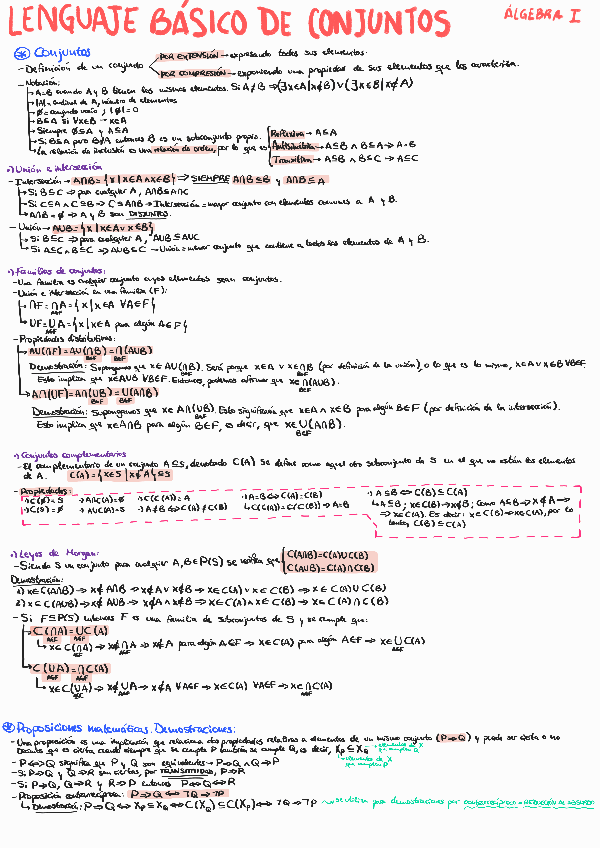 LENGUAJE BÁSICO DE CONJUNTOS
ÁLGEBRA I
* Conjuntos
- Definición de un conjunto
POR EXTENSIÓN → expresando todos sus elementos.
POR COMPRESIÓN → exponiendo una propiedad de sus elementos que los caracteriza.
- Notación:
→ A=B cuando A y B tienen los mismos elementos. Si A≠B ⇒ (∃x∈A|x∉B) ∨ (∃x∈B|x∉A)
→ |A| = cardinal de A, número de elementos
→ ∅ = conjunto vacío, |∅|=0
→ B⊆A si ∀x∈B → x∈A
→ Siempre ∅⊆A y A⊆A
→ Si B⊆A pero B≠A entonces B es un subconjunto propio.
→ La relación de inclusión es una relación de orden, por lo que es
Reflexiva → A⊆A
Antisimétrica → A⊆B ∧ B⊆A ⇒ A=B
Transitiva → A⊆B ∧ B⊆C → A⊆C
·) Unión e intersección
- Intersección → A∩B = {x | x∈A ∧ x∈B} ⇒ SIEMPRE A∩B⊆B y A∩B⊆A
→ Si B⊆C ⇒ para cualquier A, A∩B⊆A∩C
→ Si C⊆A ∧ C⊆B ⇒ C⊆A∩B → Intersección = mayor conjunto con elementos comunes a A y B.
→ A∩B = ∅ ⇒ A y B son DISJUNTOS.
- Unión → A∪B = {x | x∈A ∨ x∈B}
→ Si B⊆C ⇒ para cualquier A, A∪B⊆A∪C
→ Si A⊆C ∧ B⊆C ⇒ A∪B⊆C → Unión = menor conjunto que contiene a todos los elementos de A y B.
·) Familias de conjuntos:
- Una familia es cualquier conjunto cuyos elementos sean conjuntos.
- Unión e intersección en una familia (F):
→ ∩F = ∩A = {x | x∈A ∀A∈F}
A∈F
→ ∪F = ∪A = {x | x∈A para algún A∈F}
A∈F
- Propiedades distributivas:
→ A∪(∩F) = A∪(∩B) = ∩(A∪B)
B∈F B∈F
Demostración: Supongamos que x∈A∪(∩B). Será porque x∈A ∨ x∈∩B (por definición de la unión), o lo que es lo mismo, x∈A ∨ x∈B ∀B∈F.
Esto implica que x∈A∪B ∀B∈F. Entonces, podemos afirmar que x∈∩(A∪B).
B∈F
→ A∩(∪F) = A∩(∪B) = ∪(A∩B)
B∈F B∈F
Demostración: Supongamos que x∈A∩(∪B). Esto significa que x∈A ∧ x∈B para algún B∈F (por definición de la intersección).
Esto implica que x∈A∩B para algún B∈F, es decir, que x∈∪(A∩B).
B∈F
·) Conjuntos complementarios
- El complementario de un conjunto A⊆S, denotado C(A) se define como aquel otro subconjunto de S en el que no están los elementos
de A. C(A) = {x∈S | x∉A} ⊆ S
- Propiedades:
→ C(∅)=S → A∩C(A)=∅ → C(C(A))=A → A=B ⇔ C(A)=C(B) → A⊆B ⇔ C(B)⊆C(A)
→ C(S)=∅ → A∪C(A)=S → A≠B ⇔ C(A)≠C(B) ↳ C(C(A))=C(C(B)) ⇒ A=B
↳ A⊆B; x∈C(B) ⇒ x∉B; Como A⊆B ⇒ x∉A ⇒
⇒ x∈C(A). Es decir: x∈C(B) ⇒ x∈C(A), por lo
tanto, C(B)⊆C(A)
·) Leyes de Morgan:
- Siendo S un conjunto para cualquier A,B∈P(S) se verifica que
C(A∩B)=C(A)∪C(B)
C(A∪B)=C(A)∩C(B)
Demostración:
1) x∈C(A∩B) ⇒ x∉A∩B ⇒ x∉A ∨ x∉B ⇒ x∈C(A) ∨ x∈C(B) ⇒ x∈C(A)∪C(B)
2) x∈C(A∪B) ⇒ x∉A∪B ⇒ x∉A ∧ x∉B ⇒ x∈C(A) ∧ x∈C(B) ⇒ x∈C(A)∩C(B)
- Si F⊆P(S) entonces F es una familia de subconjuntos de S y se cumple que:
→ C(∩A) = ∪C(A)
A∈F A∈F
↳ x∈C(∩A) ⇒ x∉∩A ⇒ x∉A para algún A∈F ⇒ x∈C(A) para algún A∈F ⇒ x∈∪C(A)
A∈F A∈F A∈F
→ C(∪A) = ∩C(A)
A∈F A∈F
↳ x∈C(∪A) ⇒ x∉∪A ⇒ x∉A ∀A∈F ⇒ x∈C(A) ∀A∈F ⇒ x∈∩C(A)
A∈F A∈F A∈F
* Proposiciones matemáticas. Demostraciones:
- Una proposición es una implicación que relaciona dos propiedades relativas a elementos de un mismo conjunto (P⇒Q) y puede ser cierta o no
Decimos que es cierta cuando siempre que se cumple P también se cumple Q, es decir, Xp⊆XQ
elementos de X que cumplen Q
elementos de X que cumplen P
- P⇔Q significa que P y Q son equivalentes → P⇒Q ∧ Q⇒P
- Si P⇒Q y Q⇒R son ciertas, por TRANSITIVIDAD, P⇒R
- Si P⇒Q, Q⇒R y R⇒P entonces P⇔Q⇔R
- Proposición contrarrecíproca: P⇒Q ⇔ ¬Q⇒¬P
↳ Demostración: P⇒Q ⇔ Xp⊆XQ ⇔ C(XQ)⊆C(Xp) ⇔ ¬Q⇒¬P
→ se utiliza para demostraciones por contrarrecíproco = REDUCCIÓN AL ABSURDO